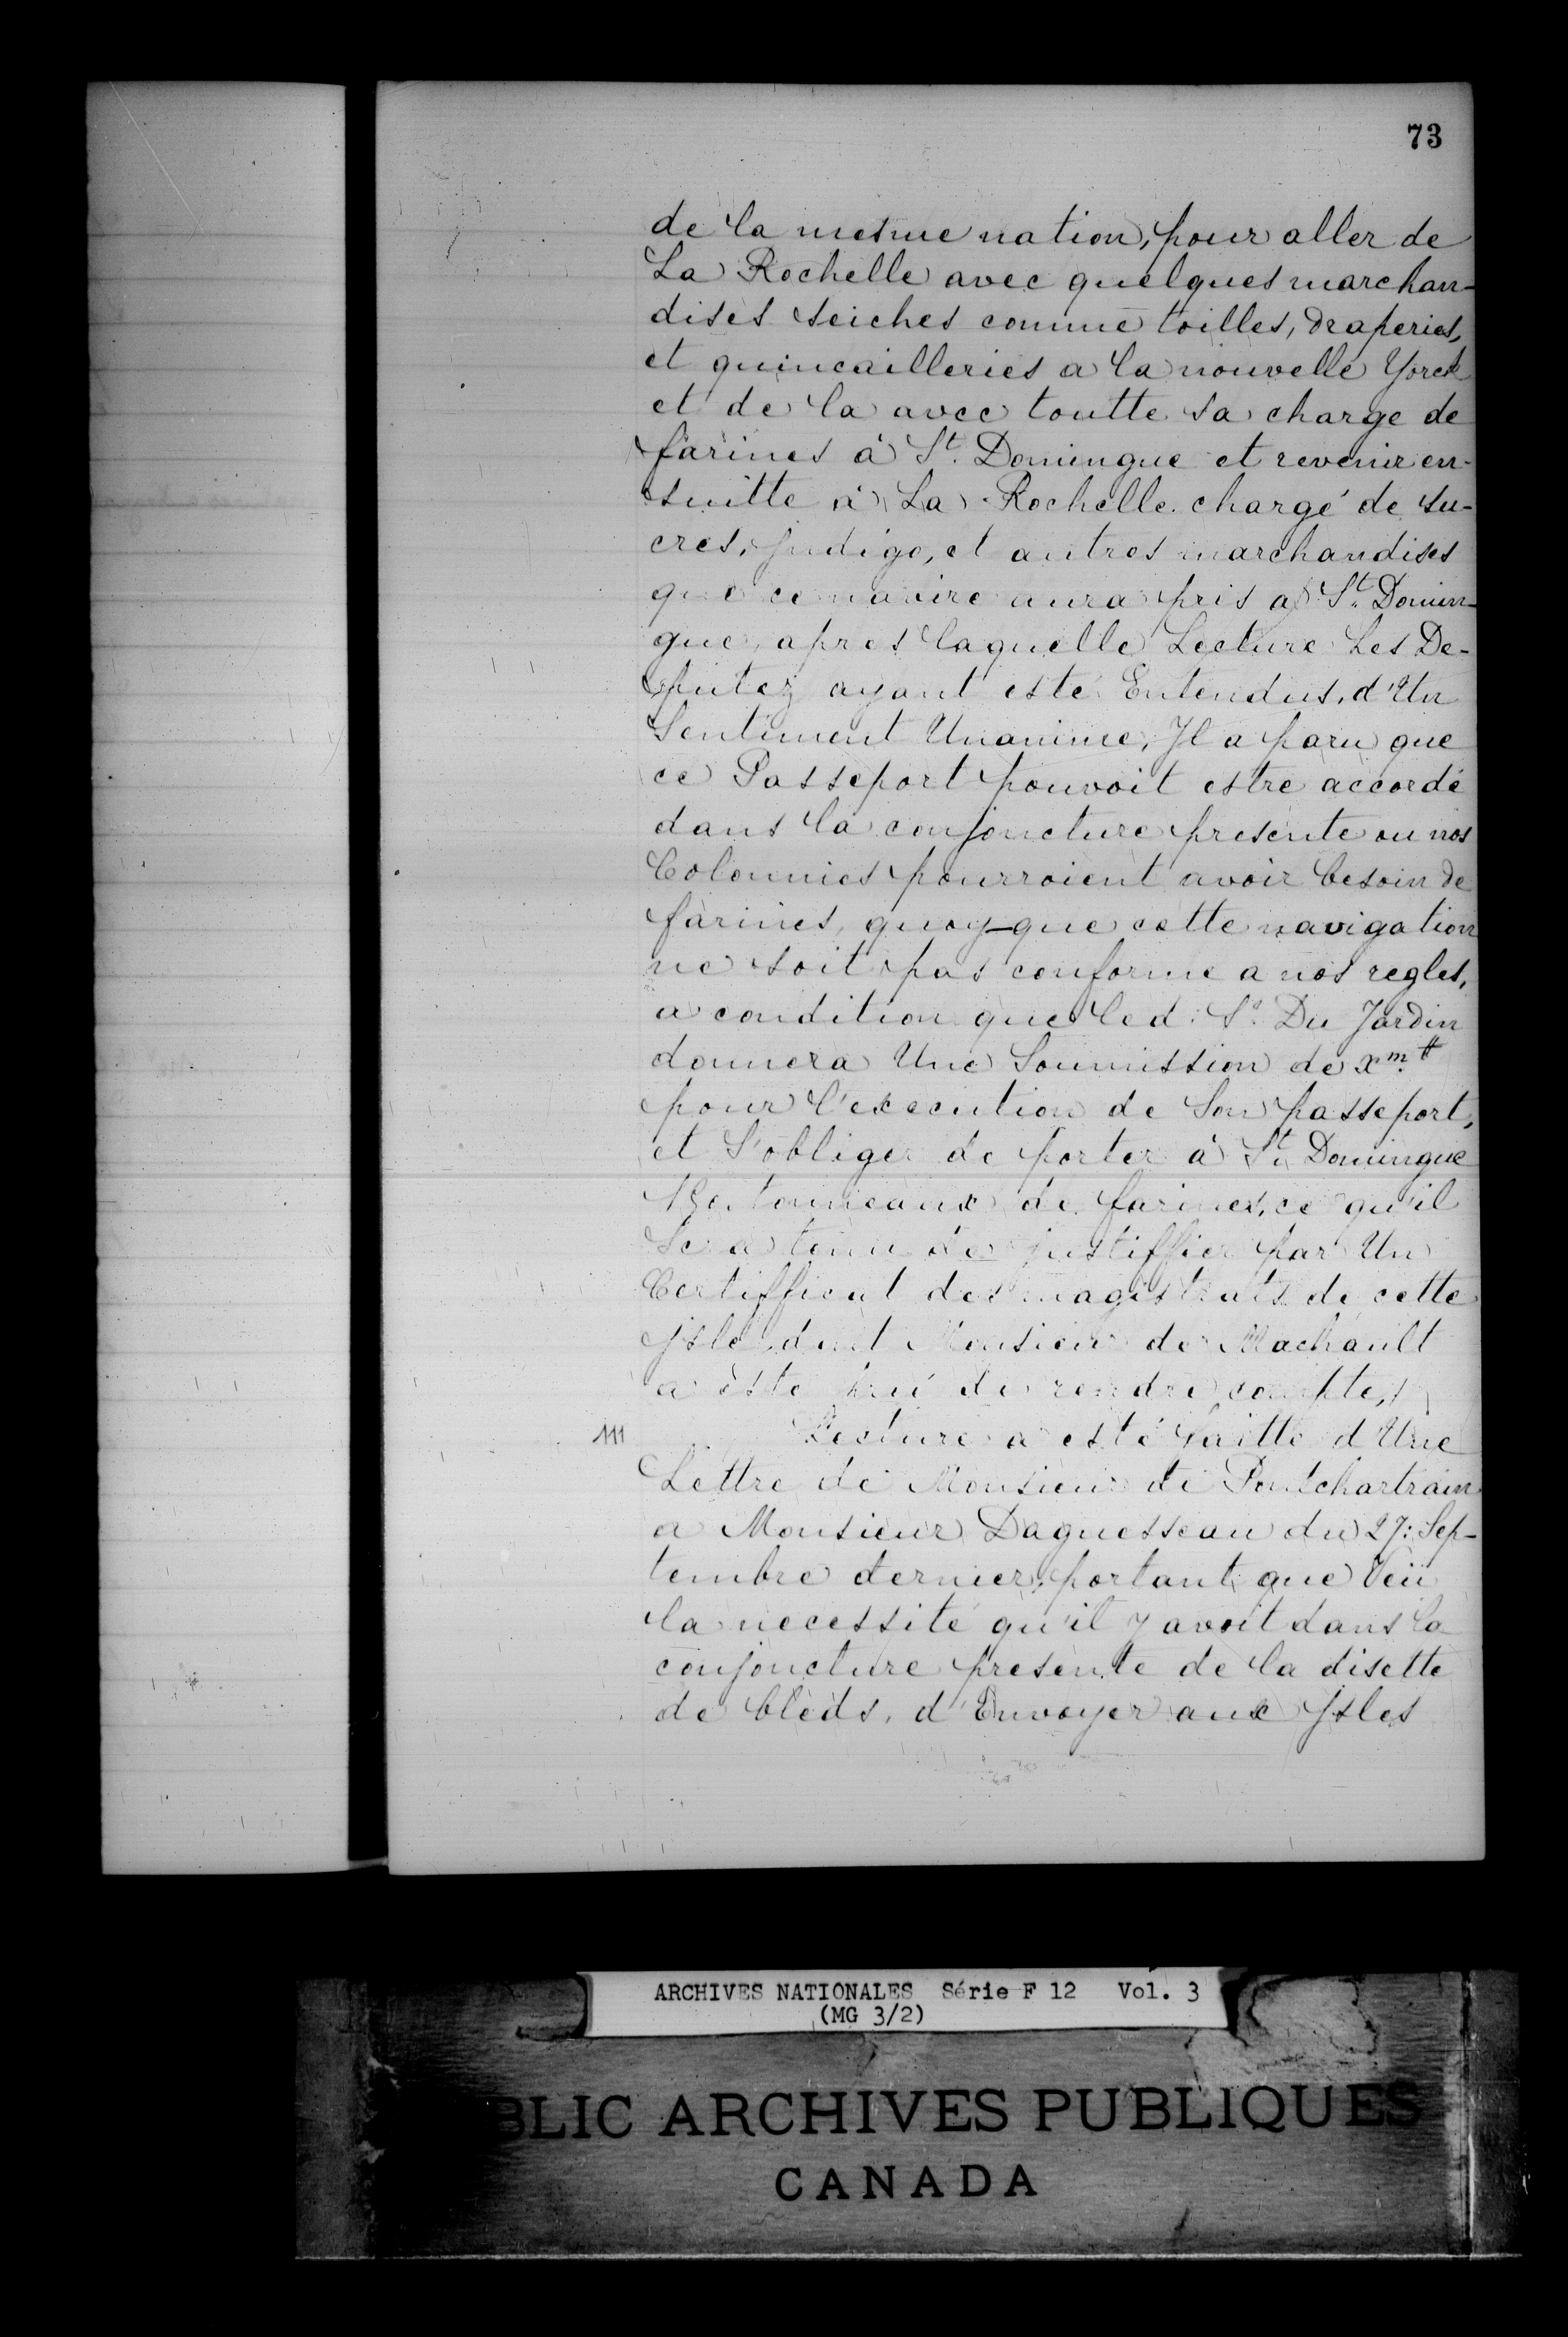 73
de la mesme nation, pour aller de
La Rochelle avec quelques marchan-
dises seiches comme toilles, draperies,
et quincailleries a la nouvelle Yorck
et de la avec toutte sa charge de
farines à St. Domingue et revenir en-
suitte à La Rochelle chargé de su-
cres, Jndigo, et autres marchandises
que ce navire aura pris a St. Domin-
gue, apres laquelle Lecture Les De-
putez ayant esté Entendus, d'Un
Sentiment Unanime, Jl a paru que
ce Passeport pouvoit estre accordé
dans la conjoncture presente ou nos
Colonnies pourroient avoir besoin de
farines, quoy-que cette navigation
ne soit pas conforme a nos regles,
a condition que led. Sr. Du Jardin
donnera Une Soumission de xm. ₶
pour l'execution de Son passeport,
et S'obliger de porter à St. Domingue
tonneaux de farines, ce qu'il
Sera tenu de justiffier par Un
Certifficat des magistrats de cette
jsle, dont Monsieur de Machault
a esté prié de rendre compte,
111 Lecture a esté faitte d'Une
Lettre de Monsieur de Pontchartrain
a Monsieur Daguesseau du 27: Sep-
tembre dernier, portant que Veü
la necessité qu'il y avoit dans la
conjoncture presente de la disette
de bleds, d'Envoyer aux Jsles
ARCHIVES NATIONALES Série F 12 Vol. 3
(MG 3/2)
BLIC ARCHIVES PUBLIQUES
CANADA